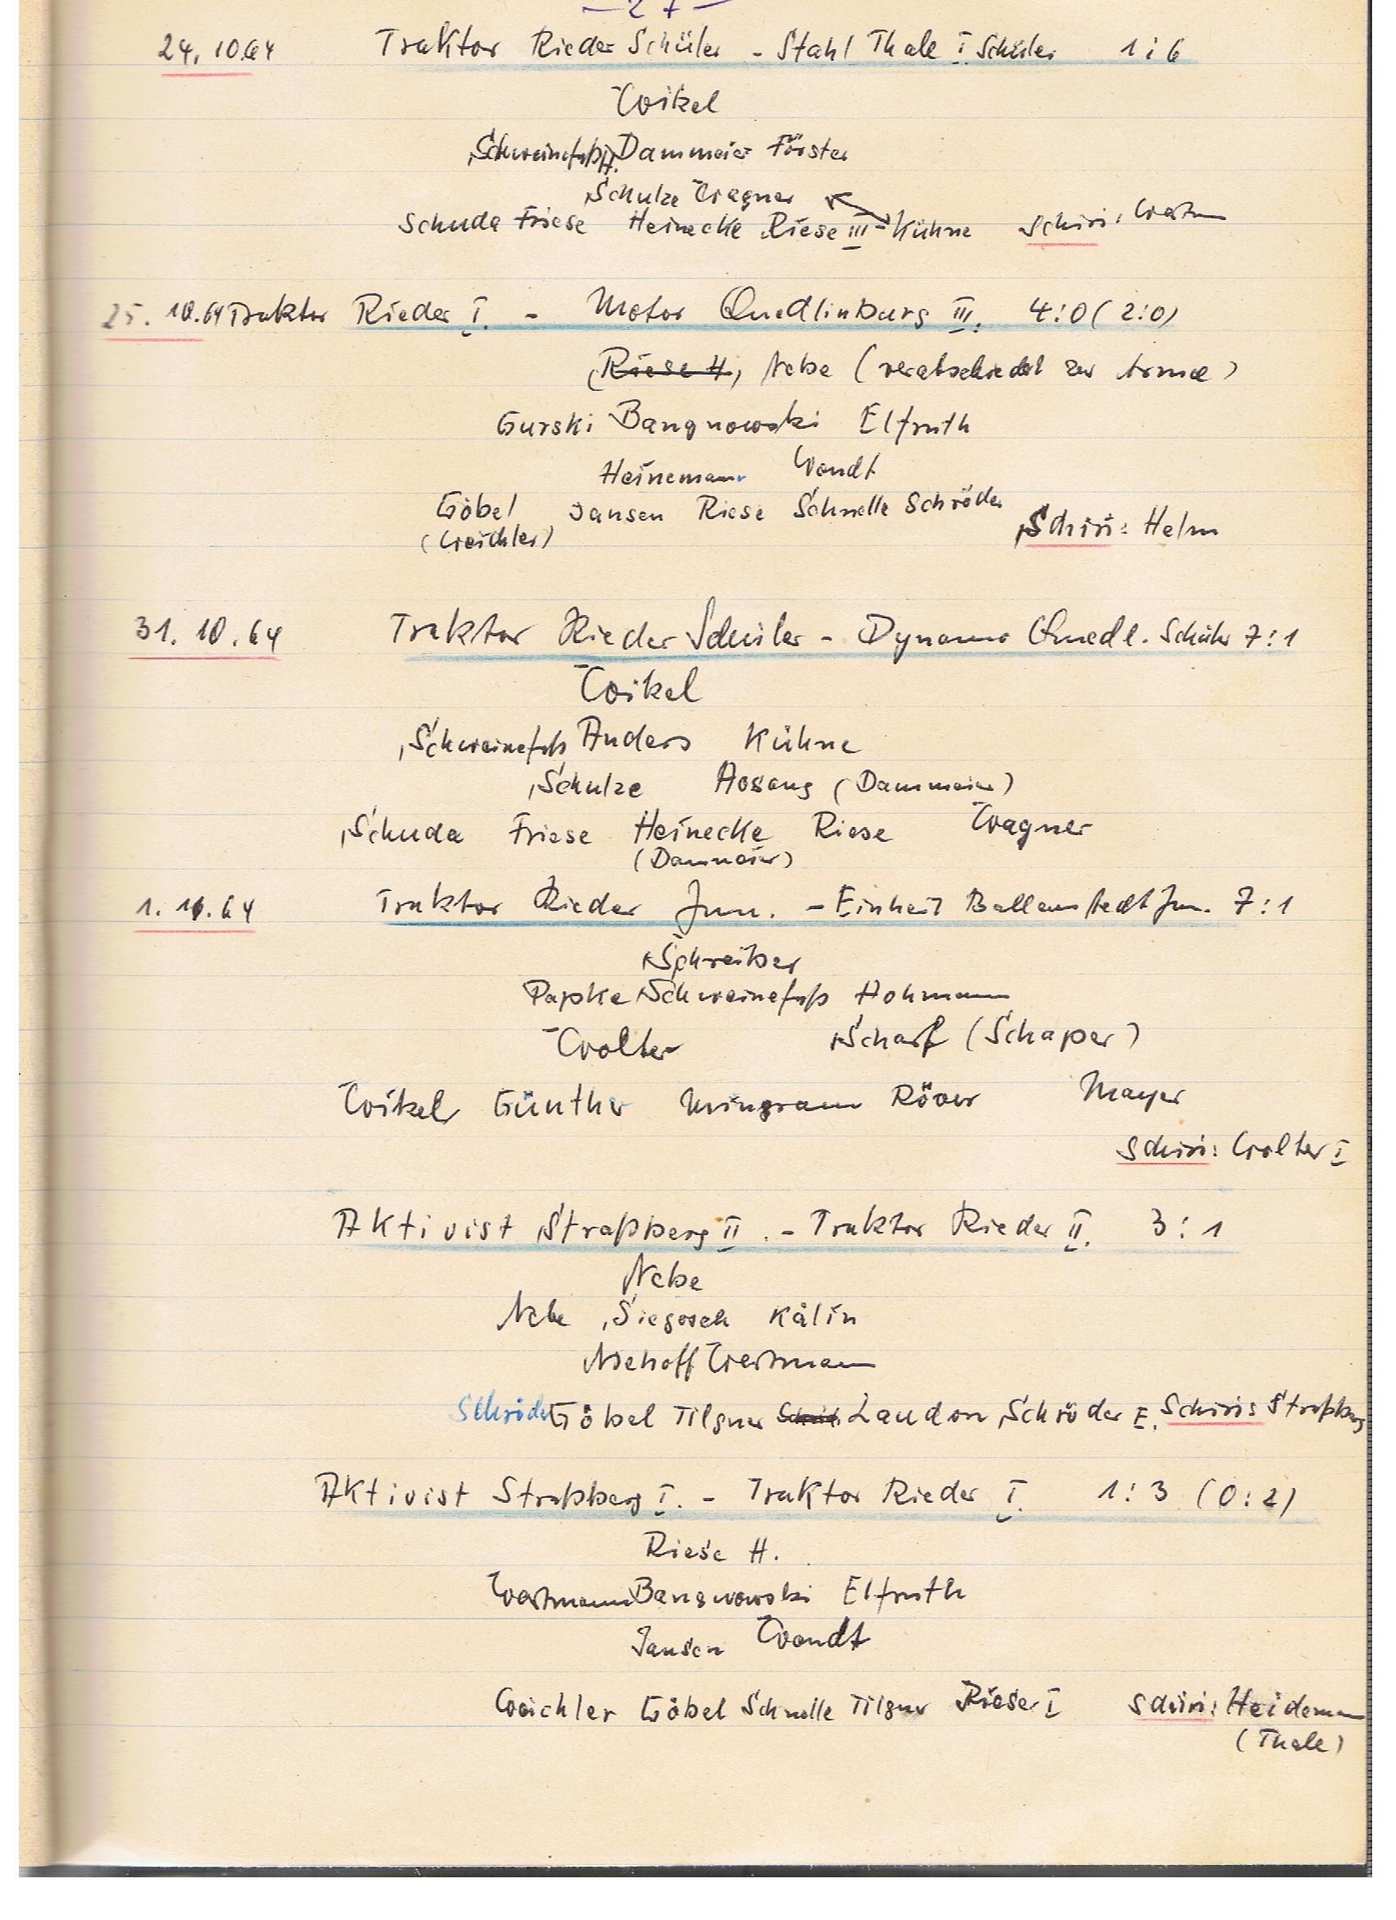 — 27 —
24. 10.64 Traktor Rieder Schüler - Stahl Thale I Schüler 1:6
Weikel
Schweinefuß H. Dammeier Förster
Schulze Wagner
Schuda Friese Heinecke Riese III - Kühne Schiri:
25. 10.64 Traktor Rieder I. - Motor Quedlinburg III. 4:0 (2:0)
(Riese H), Nebe (verabschiedet zur Armee)
Gurski Bangnowski Elfruth
Heinemann Wendt
Göbel Jansen Riese Schnelle Schröder
(Weichler) Schiri: Helm
31. 10. 64 Traktor Rieder Schüler - Dynamo Quedl. Schüler 7:1
Weikel
Schweinefuß Anders Kühne
Schulze Hosang (Dammeier)
Schuda Friese Heinecke Riese Wagner
(Dammeier)
1. 11. 64 Traktor Rieder Jun. - Einheit Ballenstedt Jun. 7:1
Schreiber
Papke Schweinefuß Hohmann
Wolter Scharf (Schaper)
Weikel Günther Mingram Röver Mayer
Schiri: Wolter I
Aktivist Straßberg II. - Traktor Rieder II. 3:1
Nebe
Nebe Siegosch Kälin
Niehoff Westmann
Schröder Göbel Tilgner Landon Schröder E. Schiris Straßberg
Aktivist Straßberg I. - Traktor Rieder I. 1:3 (0:2)
Riese H.
Westmann Bangnowski Elfruth
Jansen Wendt
Weichler Göbel Schnelle Tilgner Riese I Schiri: Heidemann
(Thale)